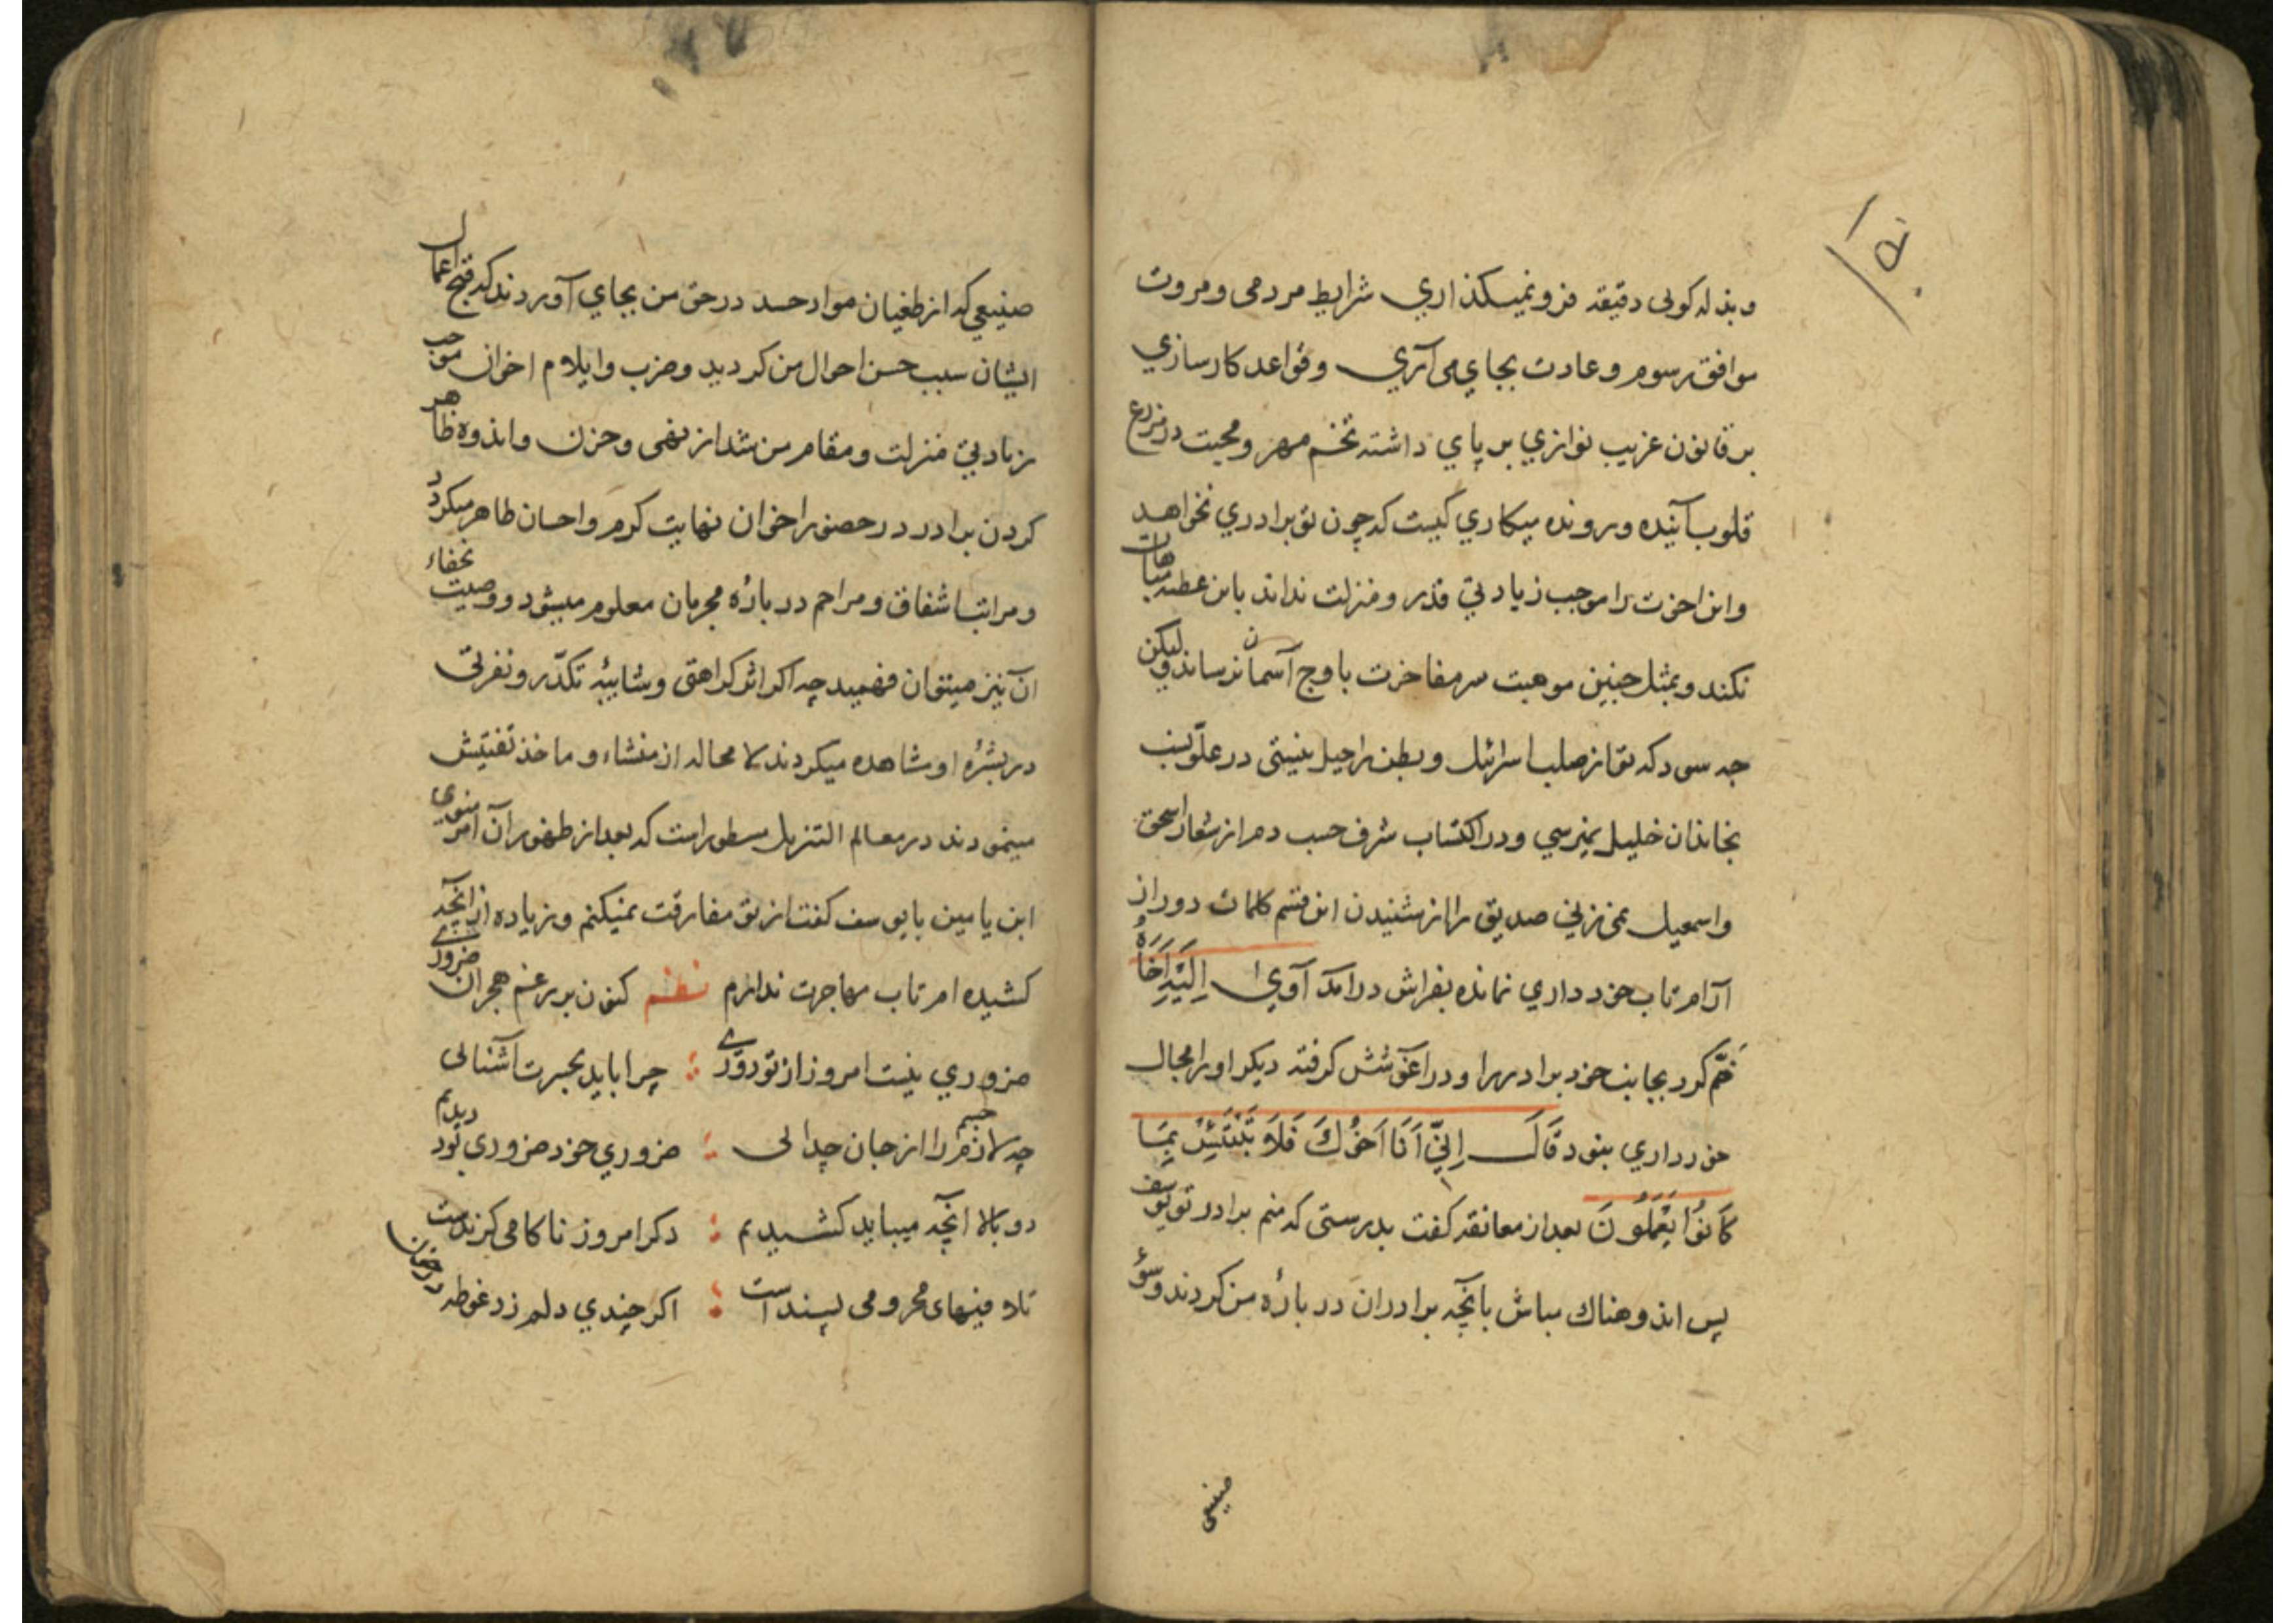 وبذله کوئی دقیقه فرو نمیکذاری شرایط مردمی ومروت
موافق رسوم وعادت بجای می آری وقواعد کارسازی
بر قانون غریب نوازی بر پای داشته تخم مهر ومحبت در مزرع
قلوب آینده ورونده میکاری کیست که چون تو برادری نخواهد
واین اخوت را موجب زیادتی قدر ومنزلت نداند باین عطیه مباهات
نکند وبمثل چنین موهبت سر مفاخرت باوج آسمان نرساند ولیکن
چه سود که تو از صلب اسرائیل وبطن راحیل نیستی در علو نسب
بخاندان خلیل نمیرسی ودر اکتساب شرف حسب دم از شعار اسحق
واسمعیل نمی زنی صدیق را از شنیدن این قسم کلمات دور از
آرام تاب خود داری نمانده بفراش درآمد آوی اِلَیْهِ اَخَاهُ
ضَم کرد بجانب خود برادر را ودر اغوشش کرفته دیکر او را مجال
خودداری نبود قَالَ اِنِّی اَنَا اَخُوكَ فَلَا تَبْتَئِسْ بِمَا
کَانُوا یَعْمَلُونَ بعد از معانقه کفت بدرستی که منم برادر تو یوسف
پس اندوهناك مباش بانچه برادران در بارهٔ من کردند وسوء
صنیعی
صنیعی که از طغیان مواد حسد در حق من بجای آوردند که قبح اعمال
ایشان سبب حسن احوال من کردید وضرب وایلام اخوان موجب
زیادتی منزلت ومقام من شد از نهی وحزن واندوه ظاهر
کردن برادر در حضور اخوان نهایت کرم واحسان ظاهر میکردد
ومراتب اشفاق ومراحم در بارهٔ مجرمان معلوم میشود ووصیت بخفاء
آن نیز میتوان فهمید چه اکر اثر کراهتی وشایبهٔ تکدّر ونفرتی
در بشرهٔ او مشاهده میکردند لا محاله از منشاء وماخذ تفتیش
مینمودند در معالم التنزیل مسطور است که بعد از ظهور آن امر منوی
ابن یامین با یوسف کفت از تو مفارقت نمیکنم وزیاده از انچه
کشیده ام تاب مهاجرت ندارم نظم کنون بر رغم هجران ضروری
ضروری نیست امروز از تو دوری : چرا باید بحیرت آشنائی
چه لازم جسم را از جان جدائی : ضروری خود ضروری بود دیدیم
دو بالا انچه میباید کشیدیم : دکر امروز ناکامی کزندست
تلافیهای محرومی پسند است : اکر چندی دلم زد غوطه در خون